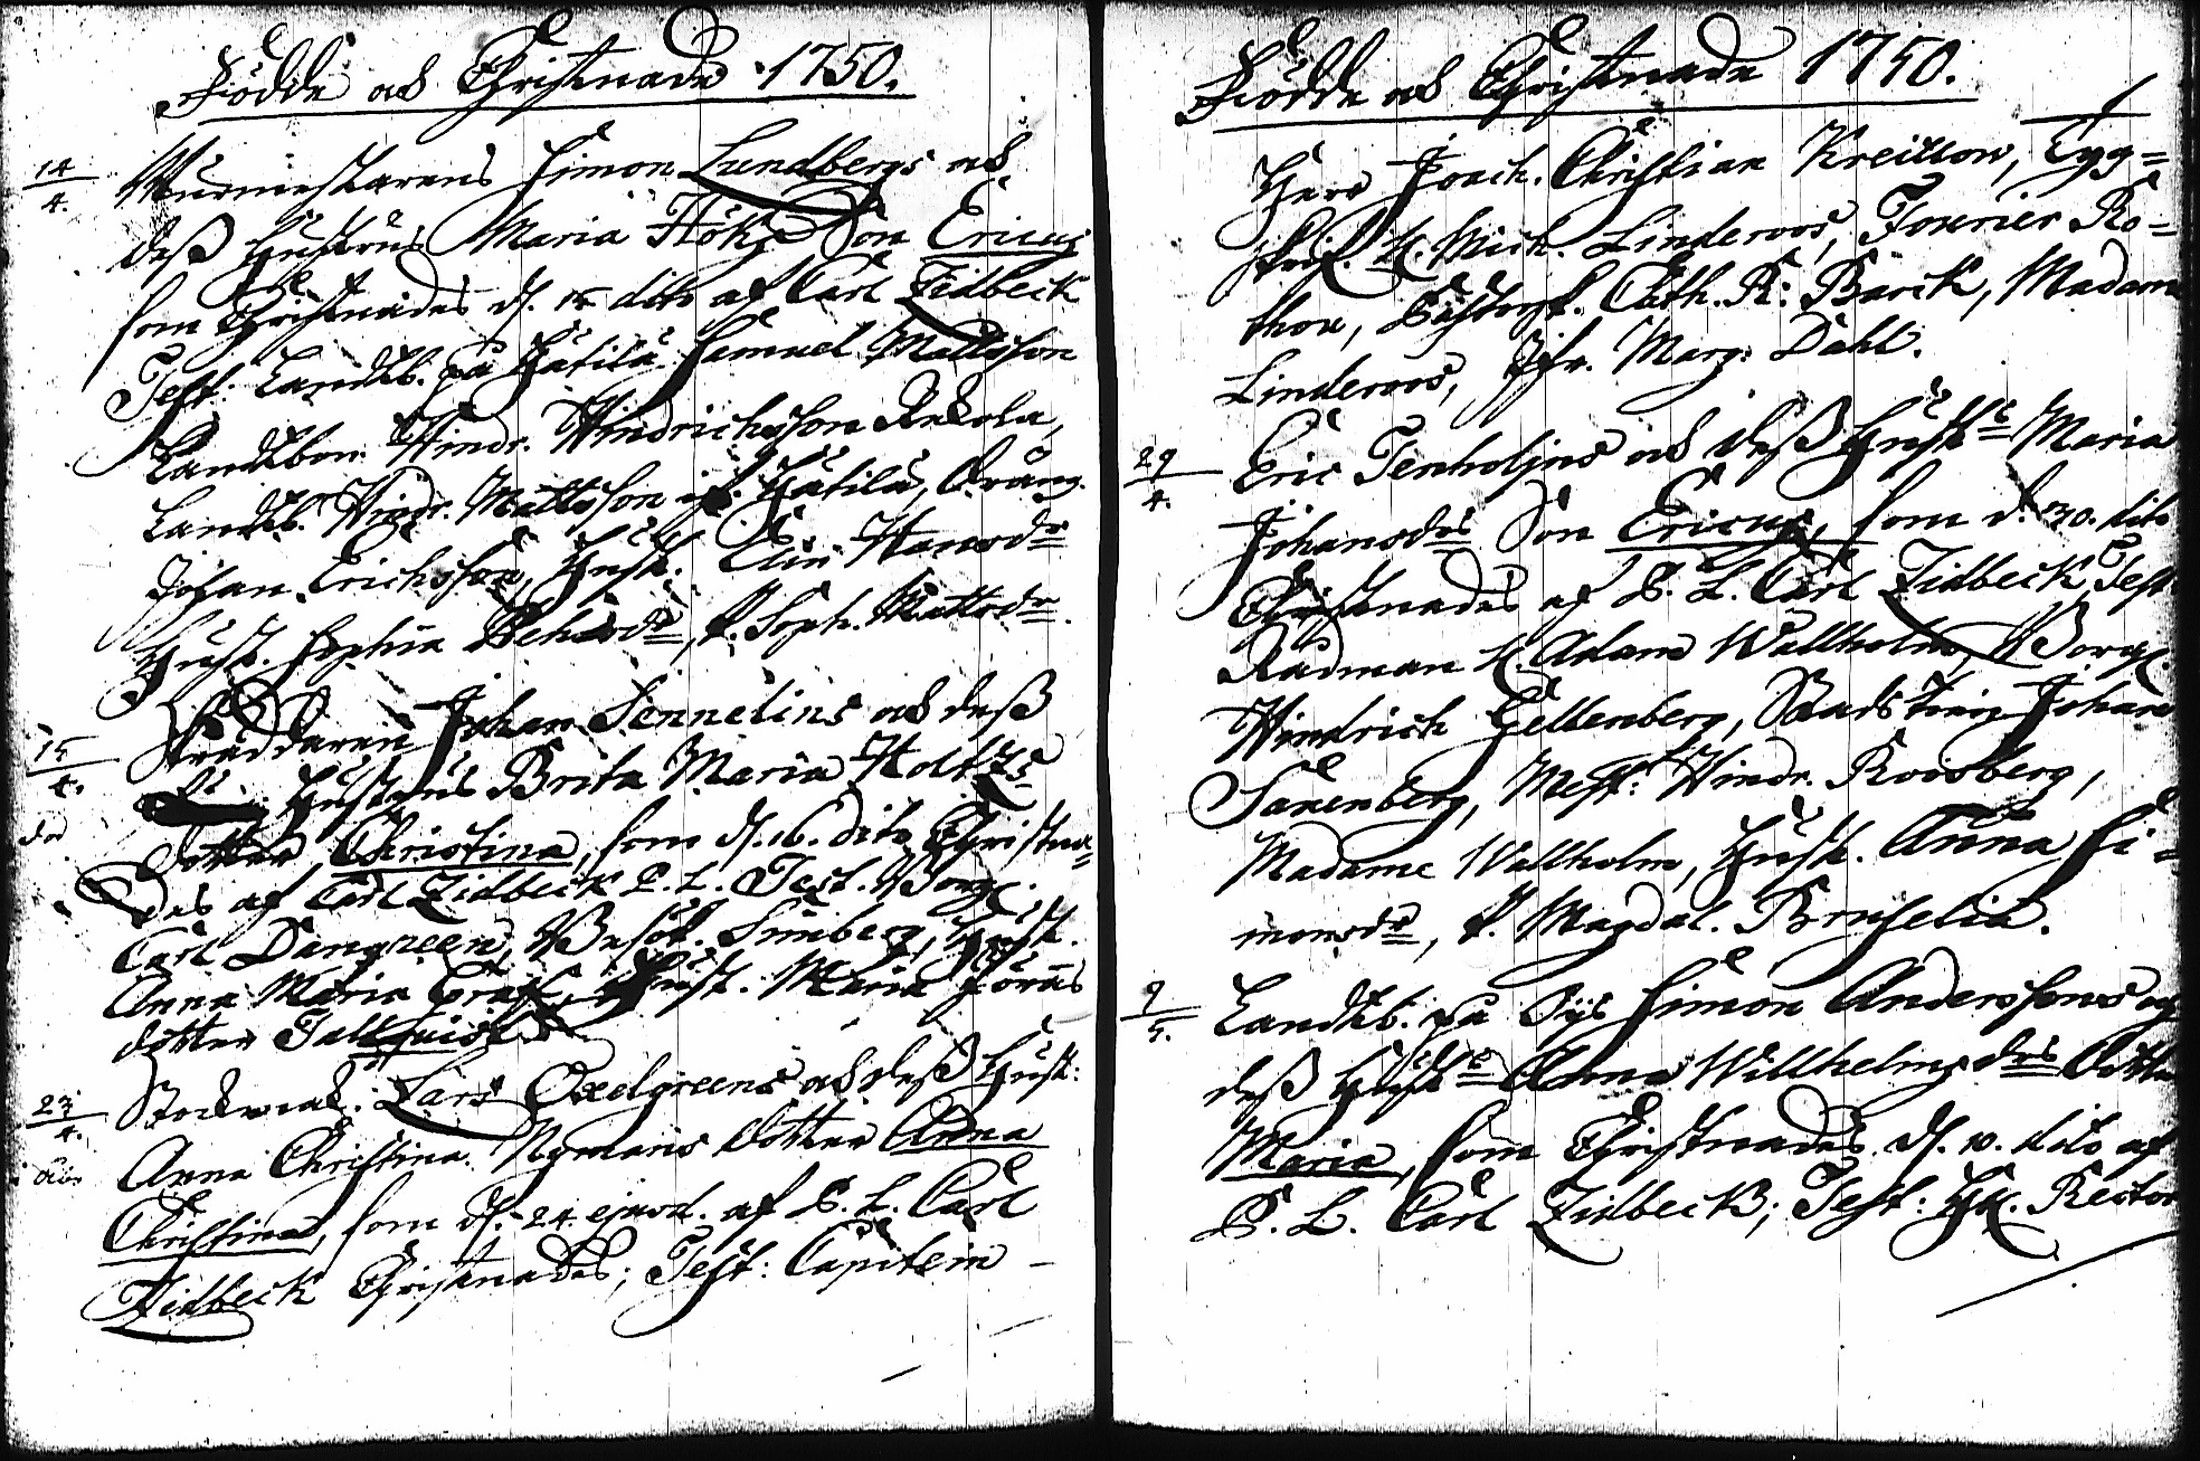 Födde och Christnade 1750.
14/4. Murmestarens Simon Lundbergs och
deß Hustrus Maria Hök Son Ericus
som Christnades d. 15 dito af Carl Lidbeck
Test: Landtb. på Hätilä Samuel Mattsson
Landtbon Hindr. Hindrichsson Rekola,
Landtb. Hindr. Mattsson if. Hätilä, Dräng.
Johan Erichsson, Hust. Elin Hansdr
Hust. Sophia, P. Soph. Mattsdr.
15/4. Skräddaren Johan Sennelius och deß
Hustrus Brita Maria Holtz
dotter Christina, som d. 16. dito Christna-
des af Carl Lidbeck P. L. Test. Borg.
Carl Dangreen, Simberg, Hust.
Anna Maria, Hust. Maria Jörans
dotter Tallquist
23/4. Lars Oxelgreens och deß Hust:
Anna Christina Nymans dotter Anna
Christina, som d. 24 ejusd. af P. L. Carl
Lidbeck Christnades; Test: Capitein
Födde och Christnade 1750.
Herr Joach. Christian Kreitlow,
H. Mich. Linderoos, Fourier Ro-
thon, Cath. R: Barck, Madam
Linderoos, Jfr. Marg: Dahl.
29/4. Eric Tenholjus och deß Hust Maria
Johansdrs Son Ericus, som d. 30. dito
Christnades af P. L. Carl Lidbeck, Test
Rådman H. Adam Wallholm, Borg.
Hindrich Gellenberg, Johan
Sanenberg, Mest: Hindr. Roosberg,
Madame Wallholm, Hust. Anna Si-
monsdr, P. Magdal. Bruselia.
9/5. Landtb. på Öijs Simon Anderssons och
deß Hust Anna Willhelms drs Dotter
Maria, som Christnades d. 10. dito af
P. L. Carl Lidbeck; Test: H. Rector